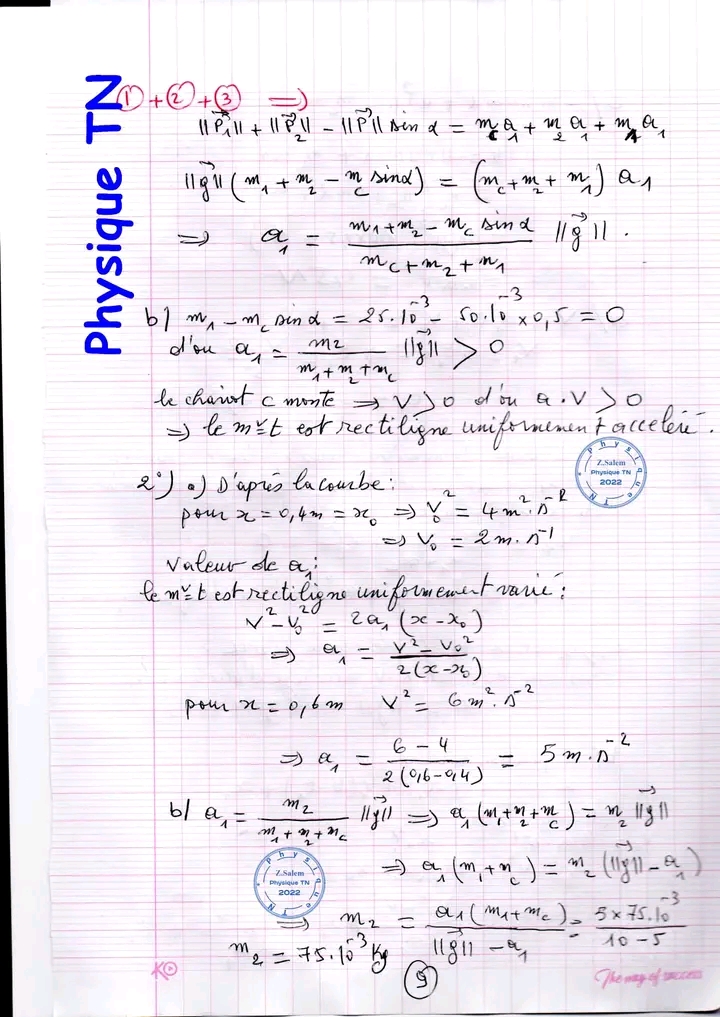 Physique TN
① + ② + ③ ⟹
||P⃗₁|| + ||P⃗₂|| - ||P⃗|| sin α = m_c a₁ + m₂ a₁ + m₁ a₁
||g⃗|| (m₁ + m₂ - m_c sinα) = (m_c + m₂ + m₁) a₁
⟹ a₁ = (m₁ + m₂ - m_c sin α) / (m_c + m₂ + m₁) ||g⃗|| .
b/ m₁ - m_c sin α = 25.10⁻³ - 50.10⁻³ × 0,5 = 0
d'ou a₁ = m₂ / (m₁ + m₂ + m_c) ||g⃗|| > 0
le chariot c monte ⟹ V > 0 d'ou a . V > 0
⟹ le mv̲t est rectiligne uniformement acceleré.
Physique TN
Z.Salem
Physique TN
2022
2°) a) D'après la courbe :
pour x = 0,4 m = x₀ ⟹ V₀² = 4 m² . s⁻²
⟹ V₀ = 2 m . s⁻¹
Valeur de a₁ :
le mv̲t est rectiligne uniformement varié :
V² - V₀² = 2 a₁ (x - x₀)
⟹ a₁ = (V² - V₀²) / 2 (x - x₀)
pour x = 0,6 m V² = 6 m² . s⁻²
⟹ a₁ = (6 - 4) / 2 (0,6 - 0,4) = 5 m . s⁻²
b/ a₁ = m₂ / (m₁ + m₂ + m_c) ||g⃗|| ⟹ a₁ (m₁ + m₂ + m_c) = m₂ ||g⃗||
⟹ a₁ (m₁ + m_c) = m₂ (||g⃗|| - a₁)
Physique TN
Z.Salem
Physique TN
2022
⟹ m₂ = a₁ (m₁ + m_c) / (||g⃗|| - a₁) = 5 × 75.10⁻³ / (10 - 5)
m₂ = 75.10⁻³ Kg
⑤
The way of success